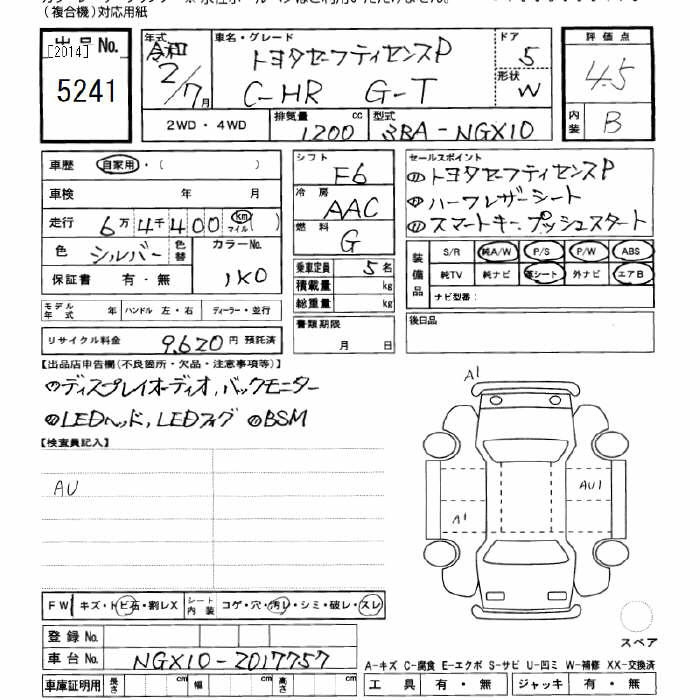 (複合機)対応用紙
出品No.
[2014]
5241
年式
令和
2/7月
車名・グレード
トヨタセーフティセンスP
C-HR G-T
ドア
5
形状
W
評価点
4.5
内装
B
2WD・4WD
排気量
1200 cc
型式
3BA-NGX10
車歴 自家用・( )
車検 年 月
走行 6万4千400 km マイル( )
色 シルバー 色替 カラーNo.
保証書 有・無 1K0
モデル年式 年 ハンドル 左・右 ディーラー・並行
リサイクル料金 9,620円 預託済
シフト
F6
冷房
AAC
燃料
G
乗車定員 5名
積載量 kg
総重量 kg
書類期限
月 日
セールスポイント
トヨタセーフティセンスP
ハーフレザーシート
スマートキー.プッシュスタート
装備品
S/R 純A/W P/S P/W ABS
純TV 純ナビ 革シート 外ナビ エアB
ナビ型番:
後日品
【出品店申告欄(不良箇所・欠品・注意事項等)】
ディスプレイオーディオ,バックモニター
LEDヘッド,LEDフォグ BSM
【検査員記入】
AU
A1
AU1
A1
スペア
FW キズ・トビ石・割レX シート内装 コゲ・穴・汚レ・シミ・破レ・スレ
登録No.
車台No. NGX10-2017757
車庫証明用 長さ cm 幅 cm 高さ cm
A-キズ C-腐食 E-エクボ S-サビ U-凹ミ W-補修 XX-交換済
工具 有・無 ジャッキ 有・無